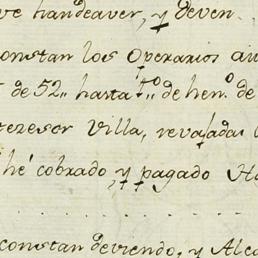 ve han deaver, y deven.
constan los Operarios au
de 52,, hasta 1,,º de hen.º de
terezesor Villa, revajadas
he cobrado y pagado Ha
constan deviendo, y Alca